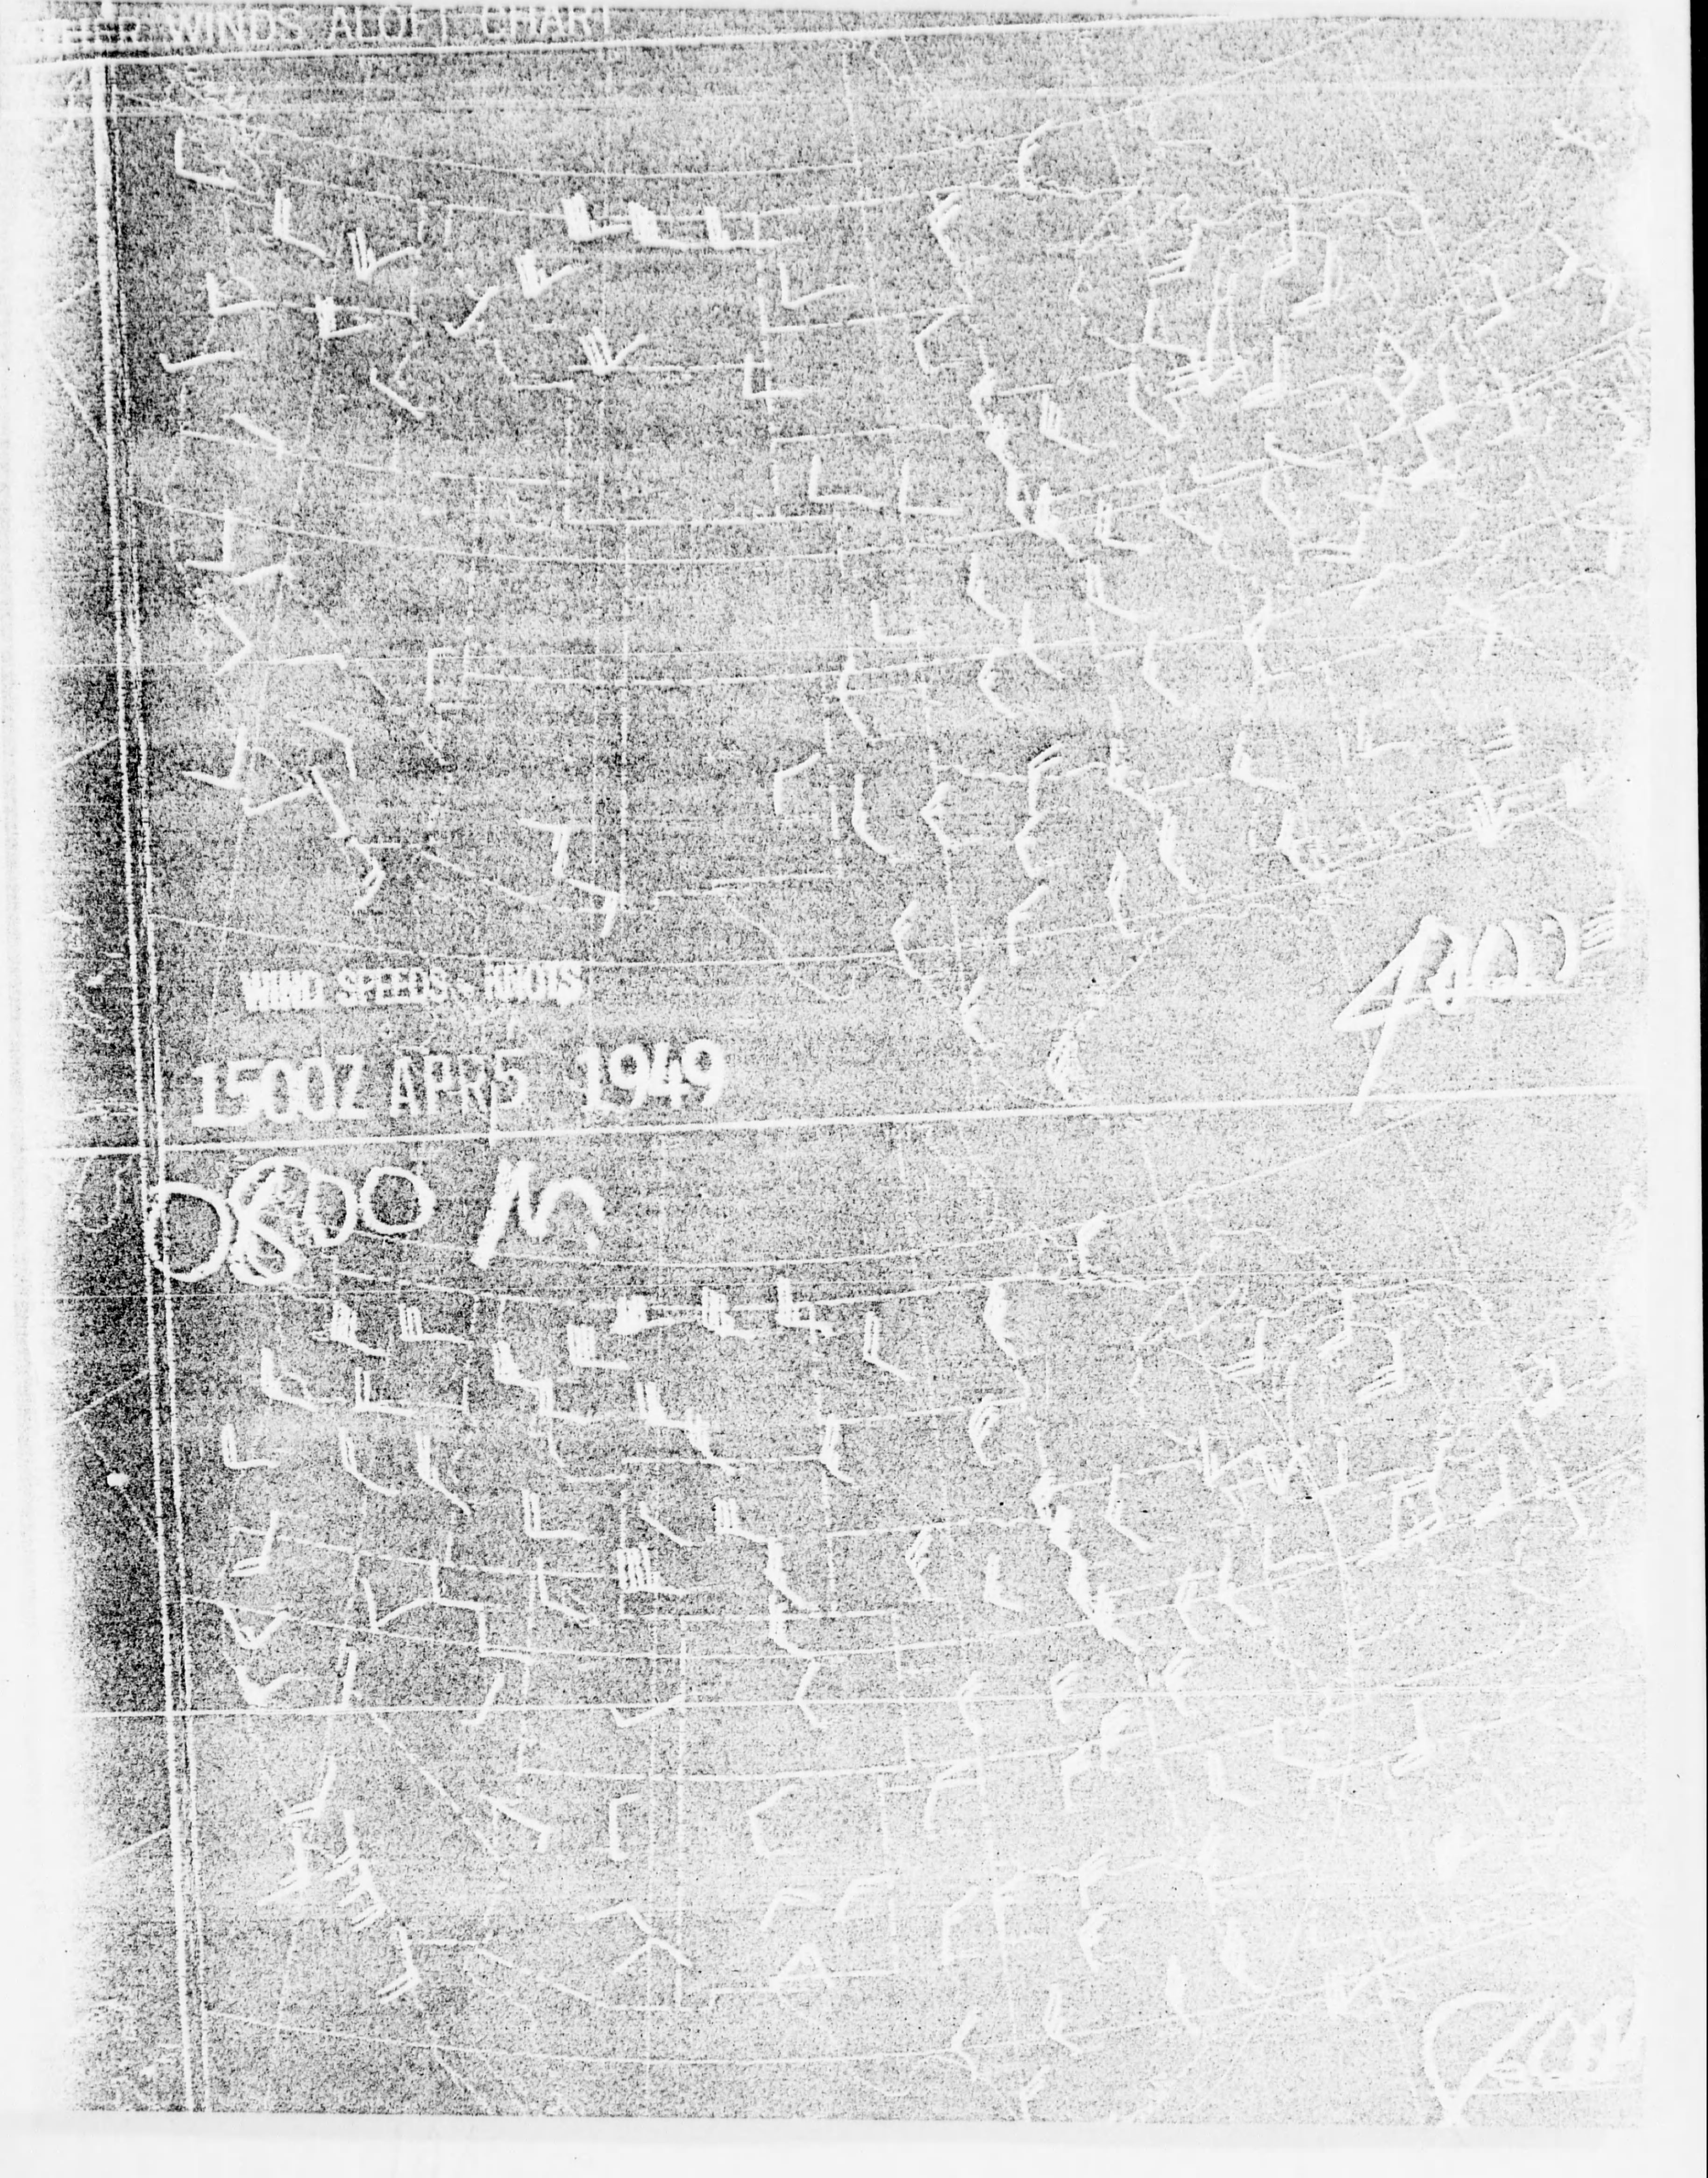 WINDS ALOFT CHART
WIND SPEEDS - KNOTS
1500Z APR 5 1949
0800 M